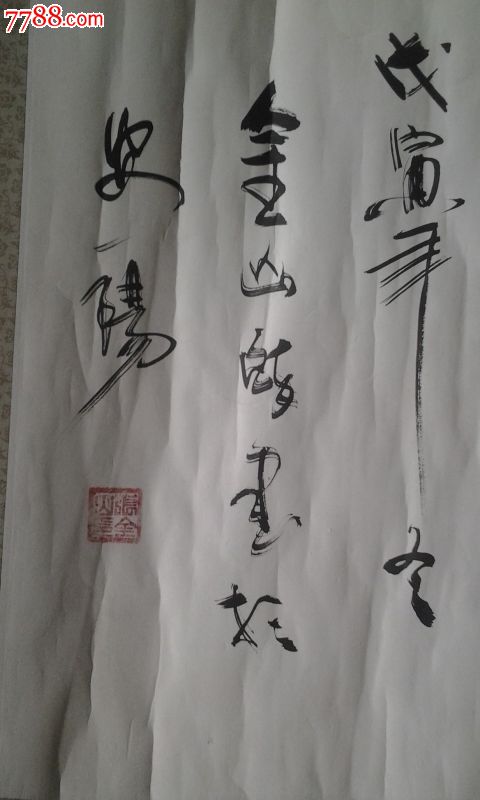 7788.com
戊寅年冬
金山醉书於
安阳